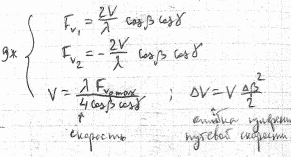 F_{v_1} = \frac{2V}{\lambda} \cos\beta \cos\gamma
9ж
F_{v_2} = -\frac{2V}{\lambda} \cos\beta \cos\gamma
V = \frac{\lambda F_{v_0 max}}{4 \cos\beta \cos\gamma} ; \Delta V = V \frac{\Delta\beta^2}{2}
скорость
путевой скорости